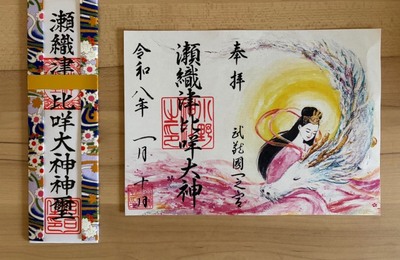 瀬織津比咩大神神璽
奉拝
武蔵國一之宮
瀬織津比咩大神
令和八年 一月 十日